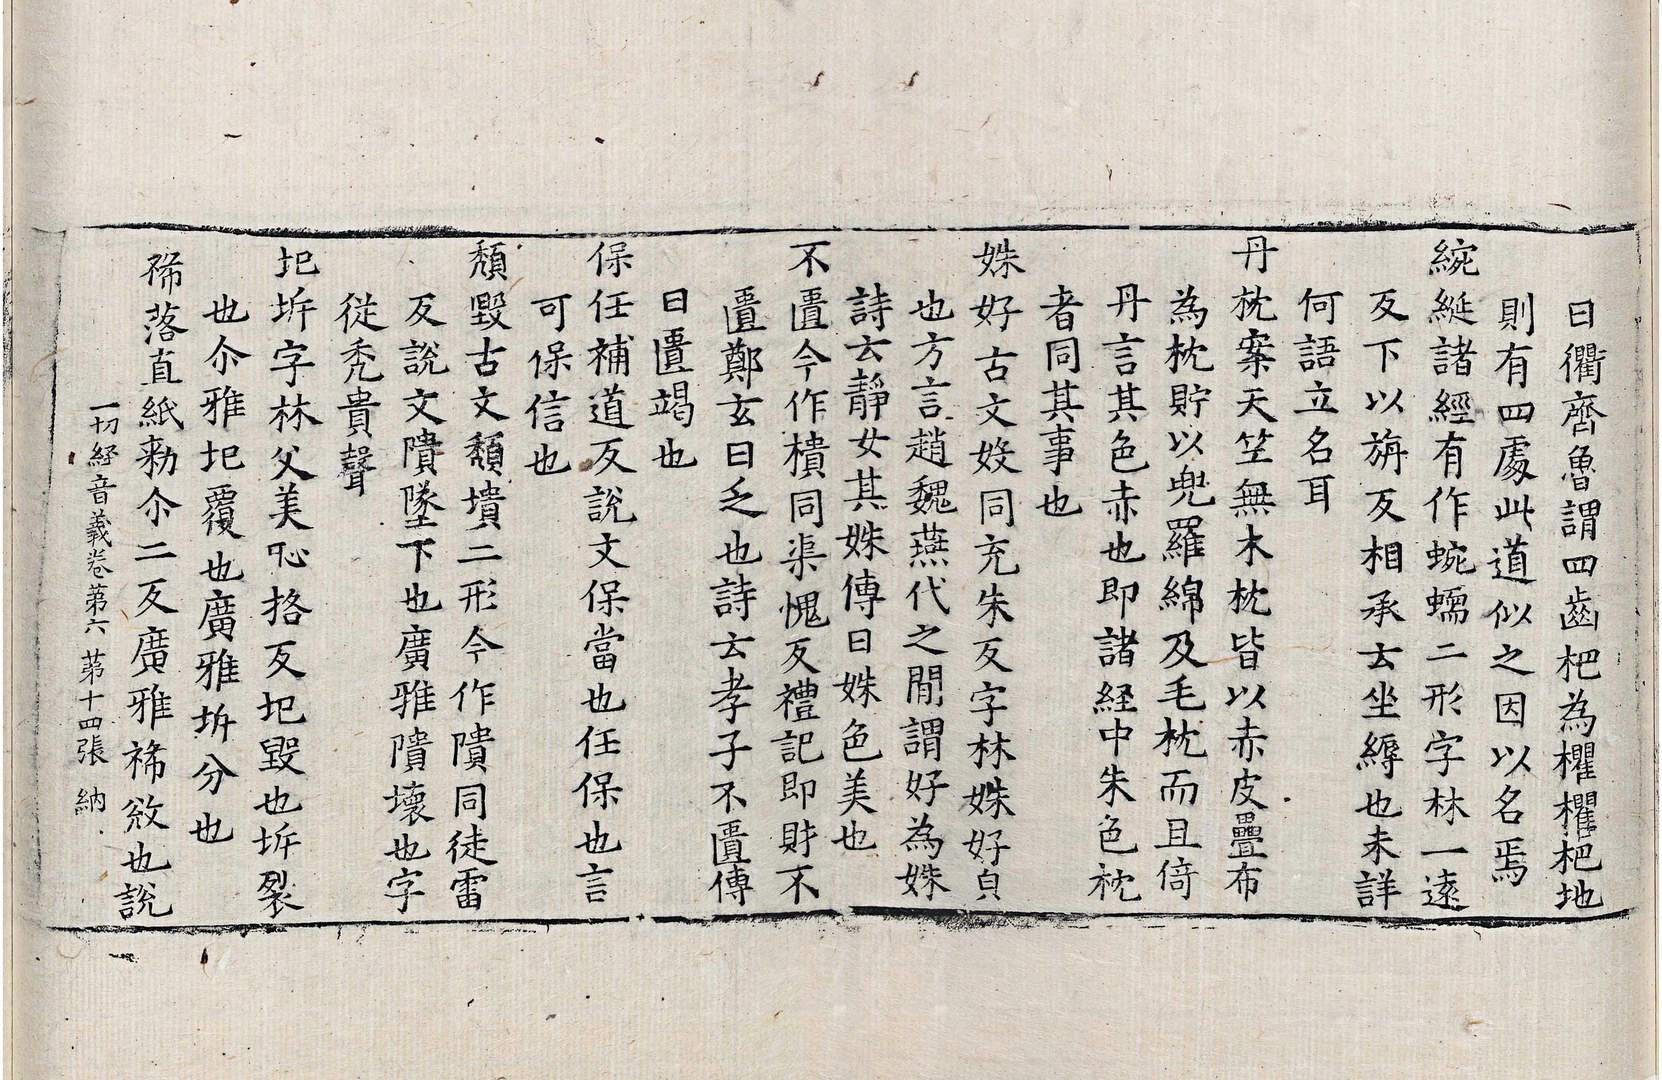 曰衢齊魯謂四齒杷為欋欋杷地
則有四處此道似之因以名焉
綩綖諸經有作蜿蠕二形字林一遠
反下以旃反相承云坐縟也未詳
何語立名耳
丹枕案天竺無木枕皆以赤皮疊布
為枕貯以兜羅綿及毛枕而且倚
丹言其色赤也即諸経中朱色枕
者同其事也
姝好古文㛥同充朱反字林姝好㒵
也方言趙魏燕代之閒謂好為姝
詩云靜女其姝傳曰姝色美也
不匱今作樻同渠愧反禮記即財不
匱鄭玄曰乏也詩云孝子不匱傳
曰匱竭也
保任補道反說文保當也任保也言
可保信也
頹毀古文頽墤二形今作隤同徒雷
反說文隤墜下也廣雅隤壞也字
從禿貴聲
圮坼字林父美恥挌反圮毀也坼裂
也尒雅圮覆也廣雅坼分也
褫落直紙勑尒二反廣雅褫敓也說
一切経音義卷第六 苐十四張 納